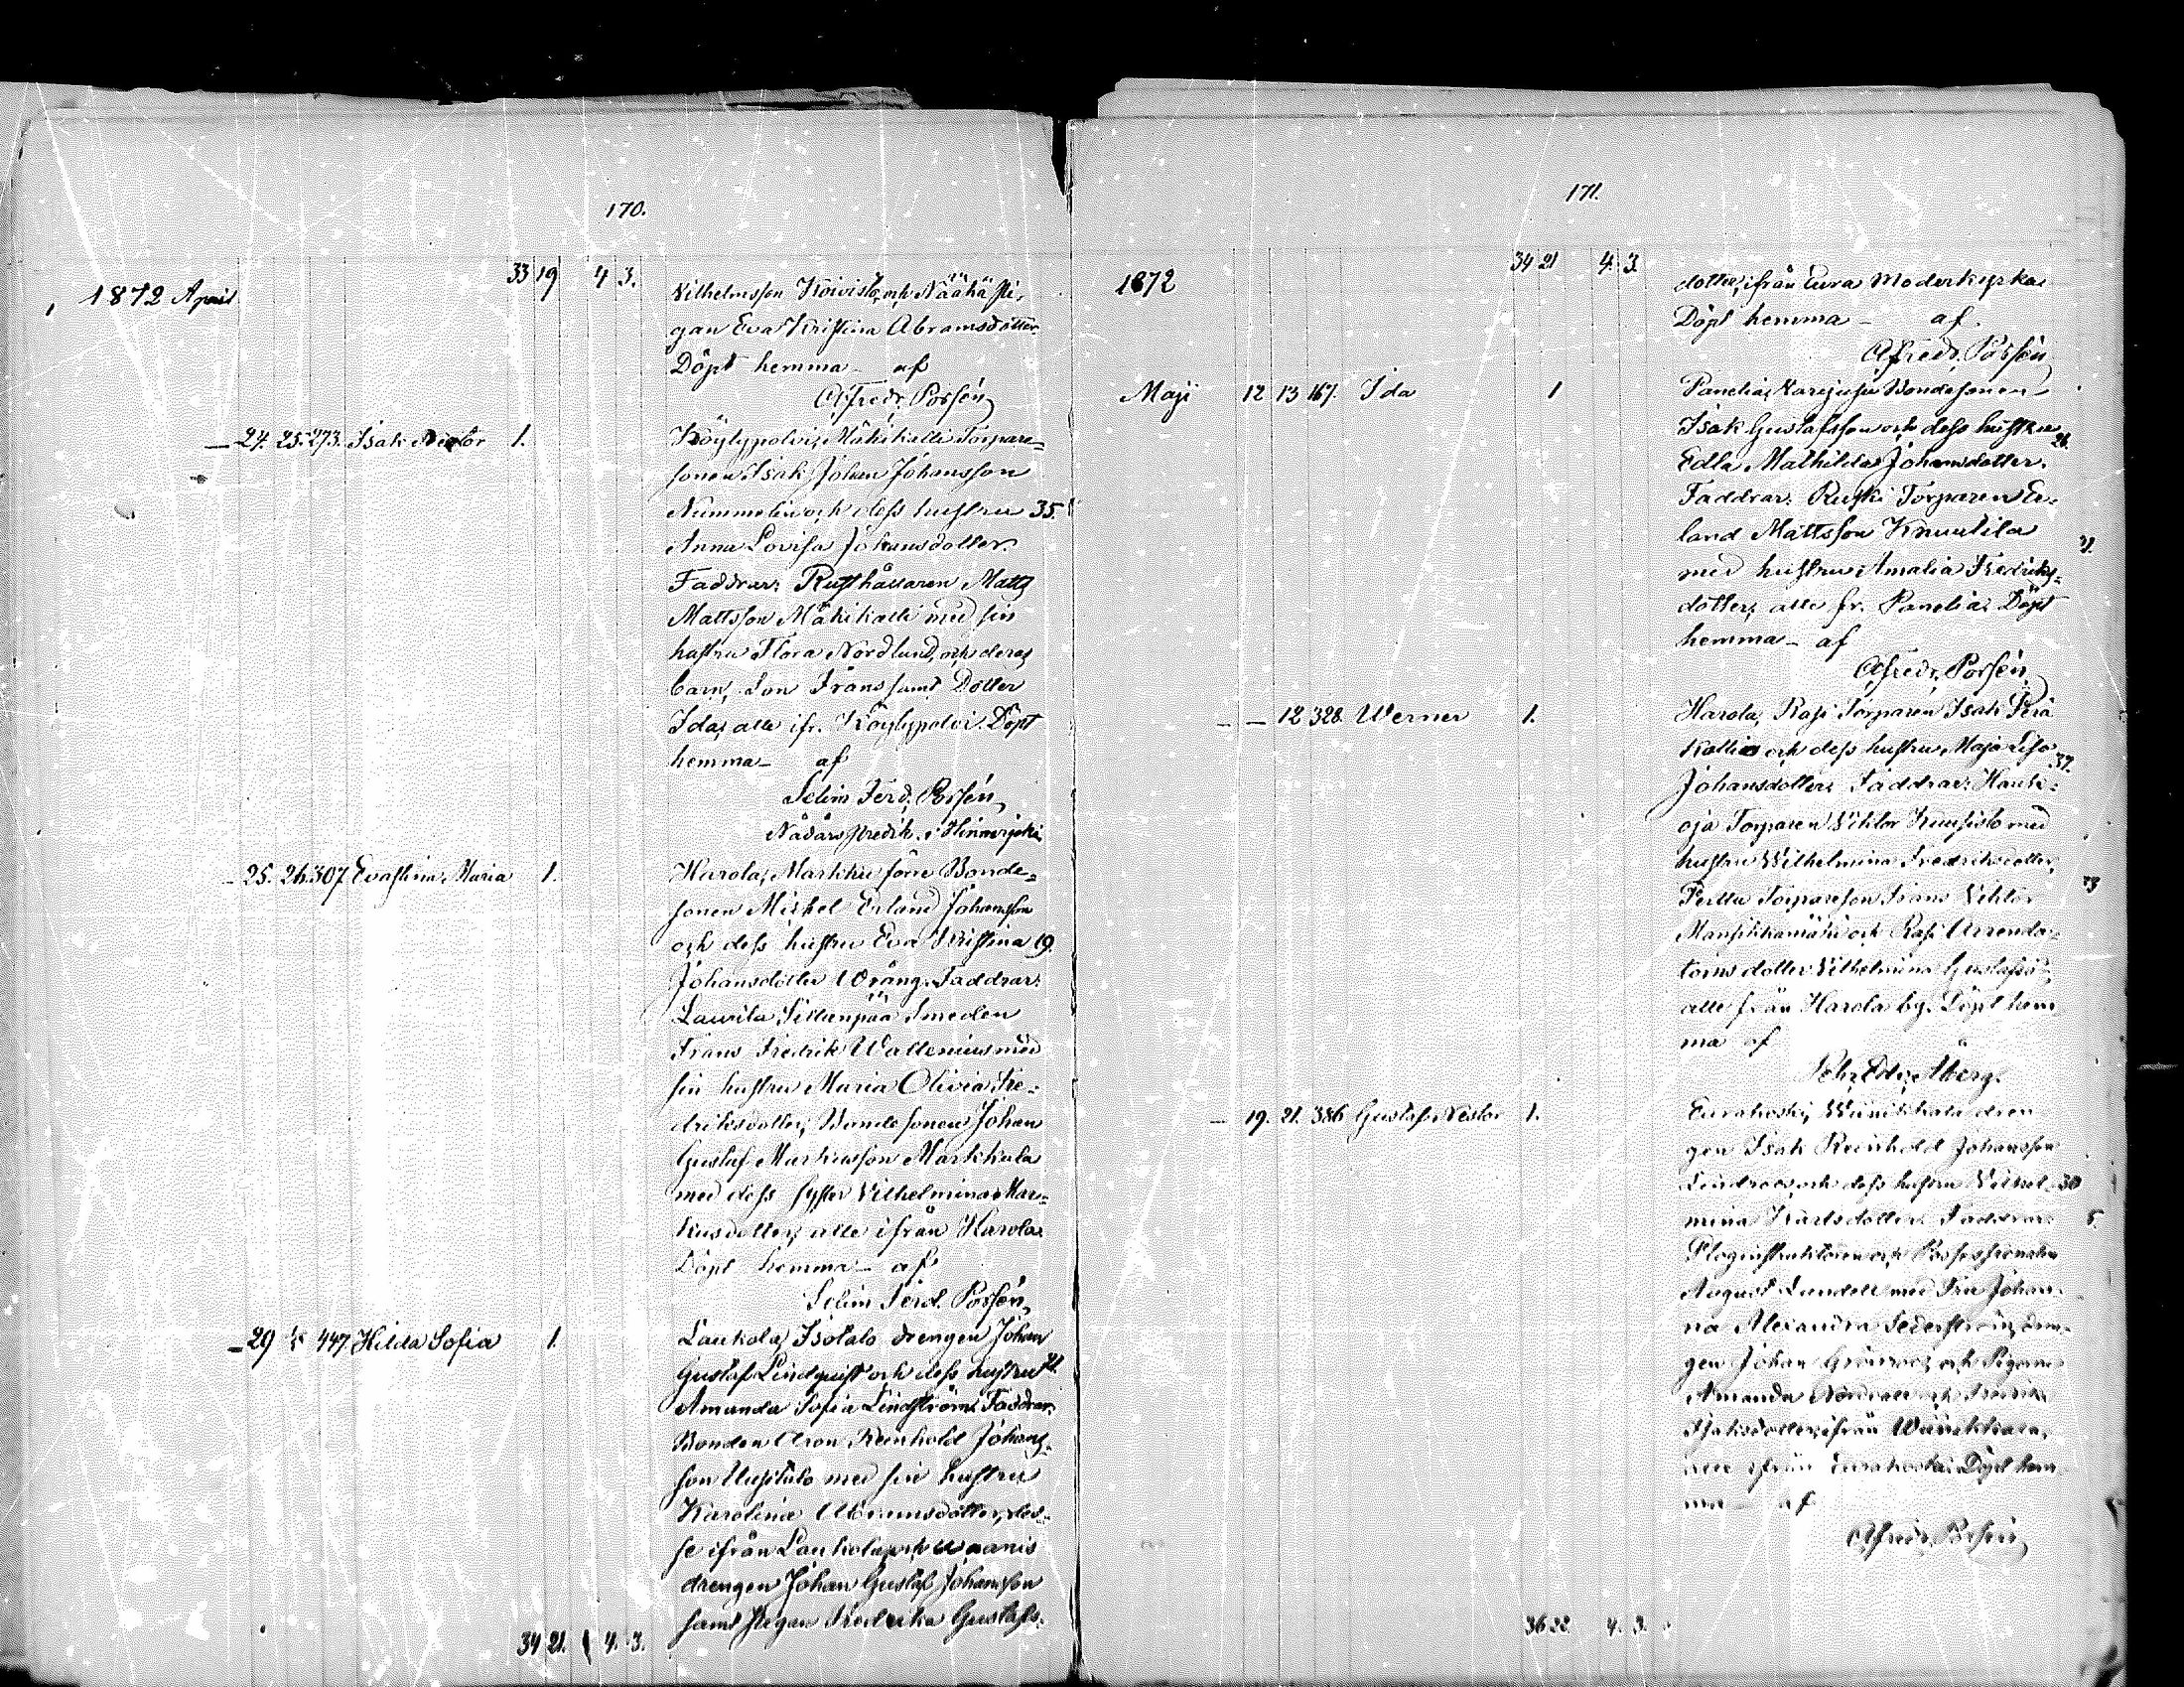 170.
33 19 4 3.
1872 April
Vilhelmsson Koivisto, och Näähä Pi-
gan Eva Kristina Abramsdotter.
Döpt hemma – af
Alfredr. Porsén
– 24. 25. 273. Isak Nestor 1.
Köylypolvi, Mäkikalli Torpare-
sonen Isak Johan Johansson
Nummelin och dess hustru 35.
Anna Lovisa Johansdotter.
Faddrar: Rusthållaren Matts
Mattsson Mäkikalli med sin
hustru Flora Nordlund, och deras
barn, Son Frans samt Dotter
Ida, alle ifr. Köylypolvi. Döpt
hemma – af
Selim Ferd. Porsén,
Nådårspredik. i Hinnerjoki.
– 25. 26. 307 Evastina Maria 1.
Harola, Markku Bonde-
sonen Mickel Erland Johansson
och dess hustru Eva Kristina 19.
Johansdotter Wrång. Faddrar:
Laurila Sillanpää Smeden
Frans Fredrik Wallenius med
sin hustru Maria Olivia Fre-
driksdotter, Bondesonen Johan
Gustaf Markusson Markkula
med dess syster Vilhelmina Mar-
kusdotter, alle ifrån Harola.
Döpt hemma – af
Selim Ferd. Porsén,
– 29 447. Hilda Sofia 1.
Laukola, Isotalo drengen Johan
Gustaf Lindquist och dess hustru
Amanda Sofia Lindström. Faddrar:
Bonden Aron Reinhold Johans-
son Uusitalo med sin hustru
Karolina Abramsdotter, des-
se ifrån Laukola, och
drengen Johan Gustaf Johansson
samt Pigan Fredrika Gustafs-
34 21. 4. 3.
171.
34 21 4. 3.
1872
dotter, ifrån Eura Moderkyrka.
Döpt hemma – af.
Alfredr. Porsén
Maji 12 13 167. Ida 1
Panelia, Bondesonen
Isak Gustafsson och dess hustru 26.
Edla Mathilda Johansdotter.
Faddrar: Ruski Torparen Er-
land Mattsson Knuutila
med hustru Amalia Fredriks-
dotter, alle fr. Panelia. Döpt
hemma – af
Alfredr. Porsén
– – 12 328. Werner 1.
Harola, Rasi Torparen Isak Perä
Kallio och dess hustru Maja Lisa 37.
Johansdotter. Faddrar: Hauki-
oja Torparen Viktor Kuusisto med
hustru Wilhelmina Fredriksdotter,
Torpareson Frans Viktor
Mansikkamäki och Rasi Arrenda-
torns dotter Vilhelmina Gustafsd.
alle från Harola by. Döpt hem-
ma af
Pehr Edv. Åberg.
– 19. 21. 386 Gustaf Nestor 1.
Eurakoski, Wänikkala dren-
gen Isak Reinhold Johansson
Lindroos, och dess hustru Vilhel- 30
mina Karlsdotter. Faddrar:
Ploginstruktören och Possessionaten
August Lundell med Fru Johan-
na Alexandra Sederström, dren-
gen Johan Grönroos, och Pigorna
Amanda och
Isaksdotter, ifrån
ifrån Eurakoski. Döpt hem-
ma – af
Alfredr. Porsén
36 22 4. 3.